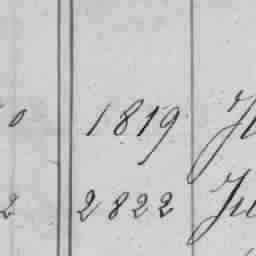 0 1819
2 2822 Ju